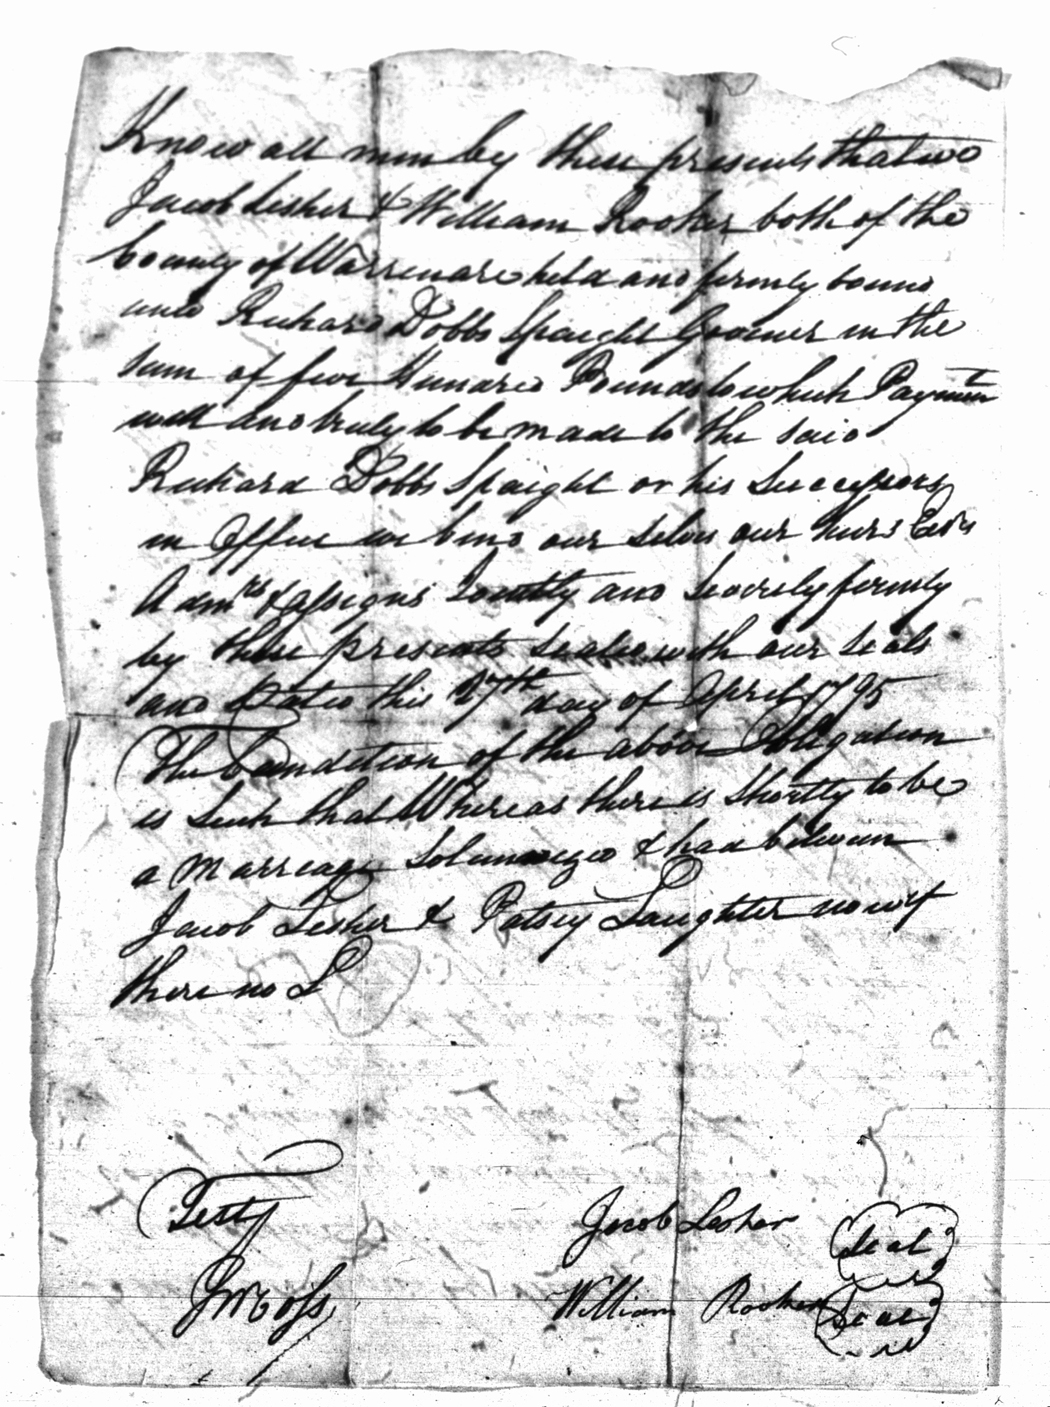 Know all men by these presents that we
Jacob Lesher & William Rooker both of the
County of Warren are held and firmly bound
unto Richard Dobbs Spaight Govener in the
Sum of five Hundred Pounds to which Payment
well and truly to be made to the said
Richard Dobbs Spaight or his Successors
in Office we bind our Selves our heirs Exrs
Admrs & Assigns Jointly and Severely firmly
by these presents Sealed with our Seals
and Dated this 17th day of April 1795
The Condition of the above Obligation
is Such that Whereas there is Shortly to be
a Marriage Solemnized & had between
Jacob Lesher & Patsey Laughter now if
there no L
Test
Jacob Lesher Seal
William Rooker Seal